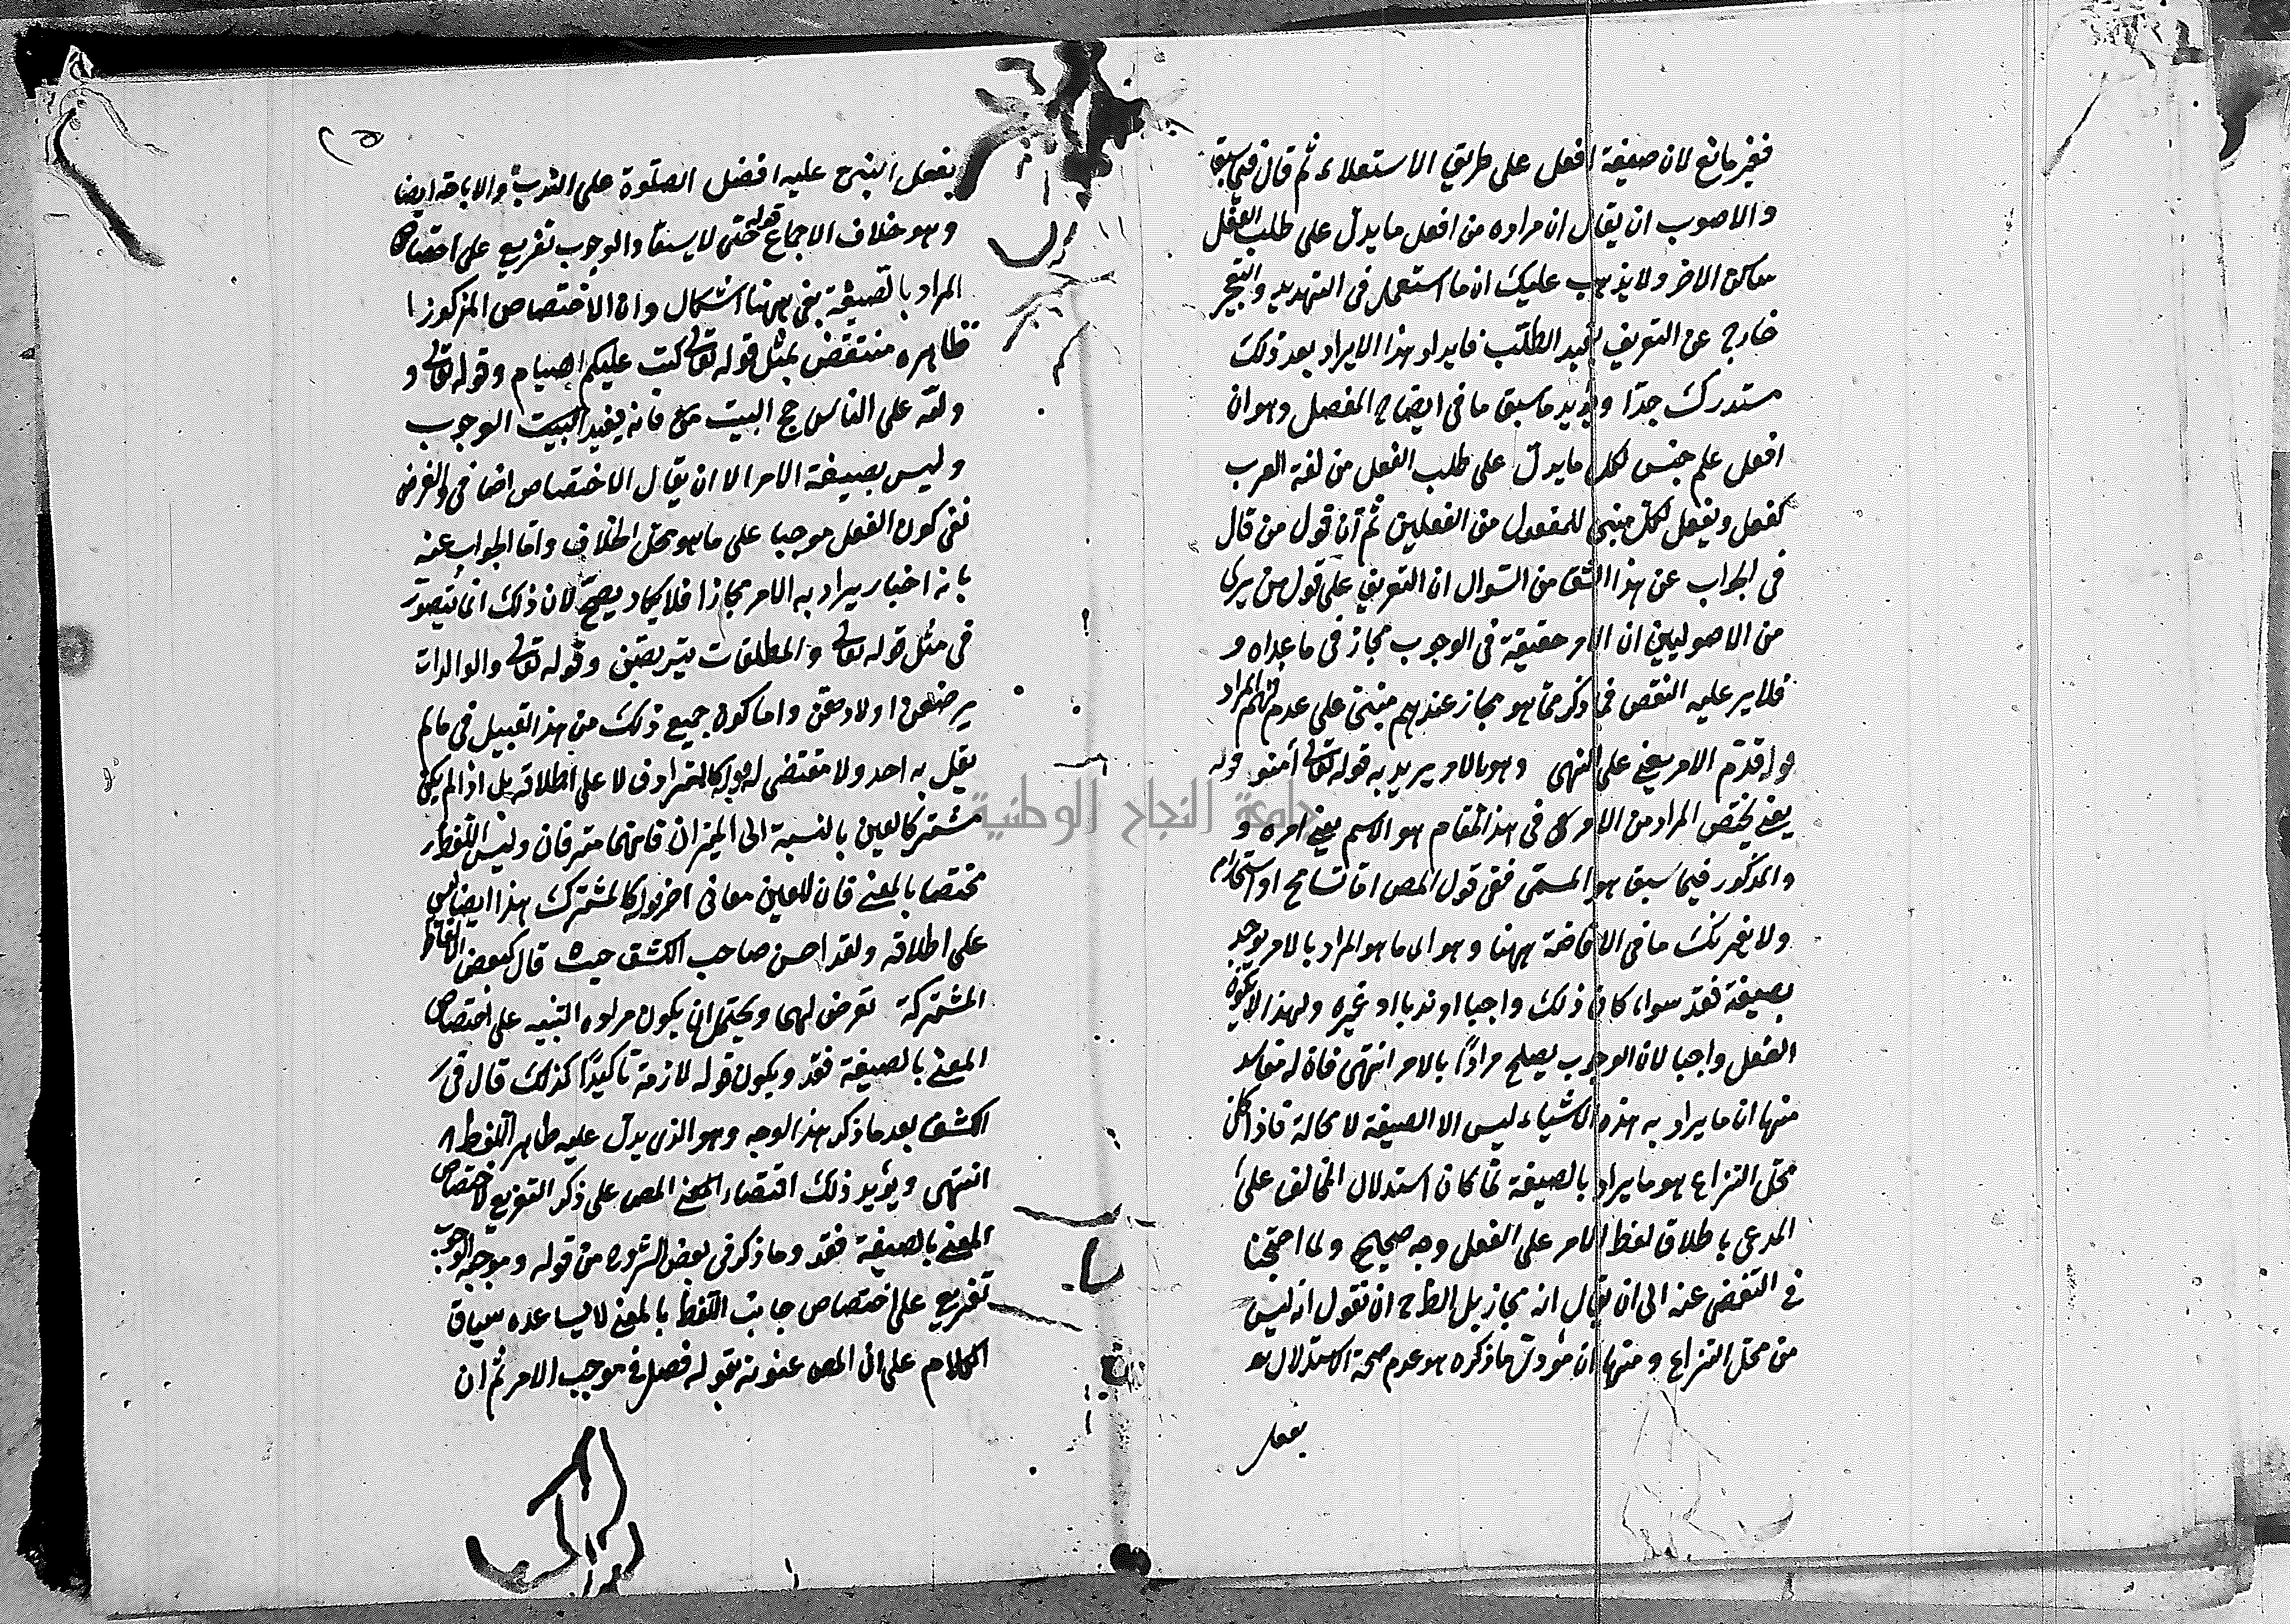 فغير مانع لان صيغة افعل على طريق الاستعلاء ثم قال في سبق
والاصوب ان يقال ان مراده من افعل ما يدل على طلب الفعل
ساكن الاخر ولا يذهب عليك ان ما استعمل في التهديد والتعجيز
خارج عن التعريف بقيد الطلب فايراد هذا الايراد بعد ذلك
مستدرك جدا ويؤيد ما سبق ما في ايضاح المفصل وهو ان
افعل علم جنس لكل ما يدل على طلب الفعل من لغة العرب
كفعل ويفعل لكل مبني للمفعول من الفعلين ثم ان قول من قال
في الجواب عن هذا الشق من السؤال ان التعريف على قول من يرى
من الاصوليين ان الامر حقيقة في الوجوب مجاز في ما عداه و
فلا يرد عليه النقض في ذكر مما هو مجاز عندهم مبني على عدم فهم المراد
قدم الامر يعني على النهي وهو بالامر يريد به قوله تعالى آمنو قوله
يعني يختص المراد من الامر في هذا المقام هو الاسم يعني امره و
والمذكور فيما سبق هو المسمى ففي قول المص اما تسامح او استخدام
ولا يغرنك ما في الافاضة ههنا وهو اى ما هو المراد بالامر يوجد
بصيغة فقد سواء كان ذلك واجبا او ندبا او غيره ولهذا لا يكون
الفعل واجبا لان الوجوب يصلح مرادًا بالامر انتهى فان له مفاسد
منها ان ما يراد به هذه الاشياء ليس الا الصيغة لا محالة فاذا كان
محل النزاع هو ما يراد بالصيغة لما كان استدلال المخالف على
المدعى باطلاق لفظ الامر على الفعل وجه صحيح ولما احتجنا
في التفصى عنه الى ان يقال انه مجاز بل الط ح ان نقول انه ليس
من محل النزاع ومنها ان مؤدى ما ذكره هو عدم صحة الاستدلال
بفعل
بفعل النبي عليه افضل الصلوة على الندب والاباحة ايضا
وهو خلاف الاجماع قوله حتى لا يستفاد الوجوب تفريع على اختصاص
المراد بالصيغة بقى ههنا اشكال وان الاختصاص المذكور
ظاهره منتقض بمثل قوله تعالى كتب عليكم الصيام وقوله تعالى و
ولله على الناس حج البيت فانه يفيد الوجوب
وليس بصيغة الامر الا ان يقال الاختصاص اضافي والغرض
نفى كون الفعل موجبا على ما هو محل الخلاف واما الجواب عنه
بانه اخبار يراد به الامر مجازا فلا يكاد يصح لان ذلك انما يتصور
في مثل قوله تعالى والمطلقات يتربصن وقوله تعالى والوالدات
يرضعن اولادهن واما كون جميع ذلك من هذا القبيل في ما لم
يقل به احد ولا مقتضى له قوله كالمترادف لا على اطلاقه بل اذا لم يكن
مشتركا كالعين بالنسبة الى الميزان فانهما مترادفان وليس اللفظ
مختصا بالمعنى فان للعين معانى اخر قوله كالمشترك هذا ايضا ليس
على اطلاقه ولقد احسن صاحب الكشف حيث قال كبعض الالفاظ
المشتركة تعرض لهما ويحتمل ان يكون مراده التنبيه على اختصاص
المعنى بالصيغة فقد ويكون قوله لازمة تاكيدًا كذلك قال في
الكشف بعد ما ذكر هذا الوجه وهو الذى يدل عليه ظاهر اللفظ
انتهى ويؤيد ذلك اقتصار المص على ذكر التفريع لاختصاص
المعنى بالصيغة فقد وما ذكر في بعض الشروح من قوله وموجبه الوجوب
تفريع على اختصاص جانب اللفظ بالمعنى لا يساعده سياق
الكلام على ان المص عنونه بقوله فصل في موجب الامر ثم ان
جامعة النجاح الوطنية